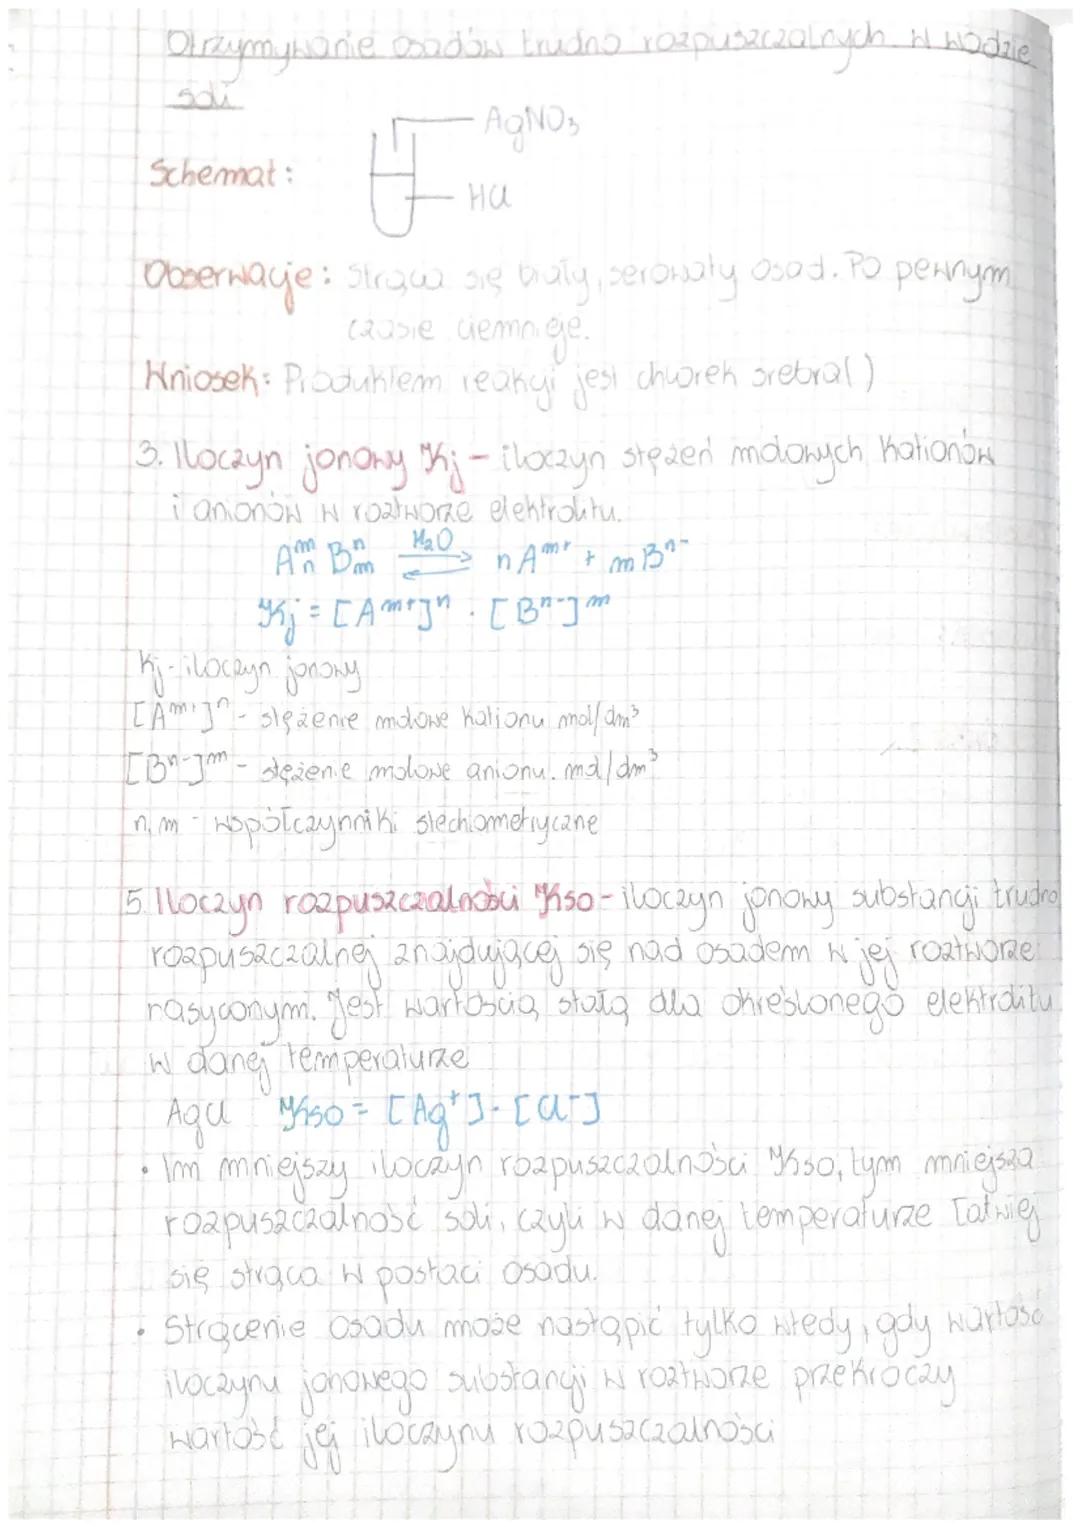 Otrzymywanie osadów trudno rozpuszczalnych w wodzie
soli
AgNO₃
Schemat:
HCl
Obserwacje: Strąca się biały, serowaty osad. Po pewnym
czasie ciemnieje.
Wniosek: Produktem reakcji jest chlorek srebra( )
3. Iloczyn jonowy Kj - iloczyn stężeń molowych kationów
i anionów w roztworze elektrolitu.
Aᵐₙ Bⁿₘ ⇌ (H₂O) n Aᵐ⁺ + m Bⁿ⁻
Kj = [Aᵐ⁺]ⁿ · [Bⁿ⁻]ᵐ
Kj - iloczyn jonowy
[Aᵐ⁺]ⁿ - stężenie molowe kationu mol/dm³
[Bⁿ⁻]ᵐ - stężenie molowe anionu. mol/dm³
n, m - współczynniki stechiometryczne
5. Iloczyn rozpuszczalności Kso - iloczyn jonowy substancji trudno
rozpuszczalnej znajdującej się nad osadem w jej roztworze
nasyconym. Jest wartością stałą dla określonego elektrolitu
w danej temperaturze
AgCl Kso = [Ag⁺] · [Cl⁻]
• Im mniejszy iloczyn rozpuszczalności Kso, tym mniejsza
rozpuszczalność soli, czyli w danej temperaturze łatwiej
się strąca w postaci osadu.
• Strącenie osadu może nastąpić tylko wtedy, gdy wartość
iloczynu jonowego substancji w roztworze przekroczy
wartość jej iloczynu rozpuszczalności